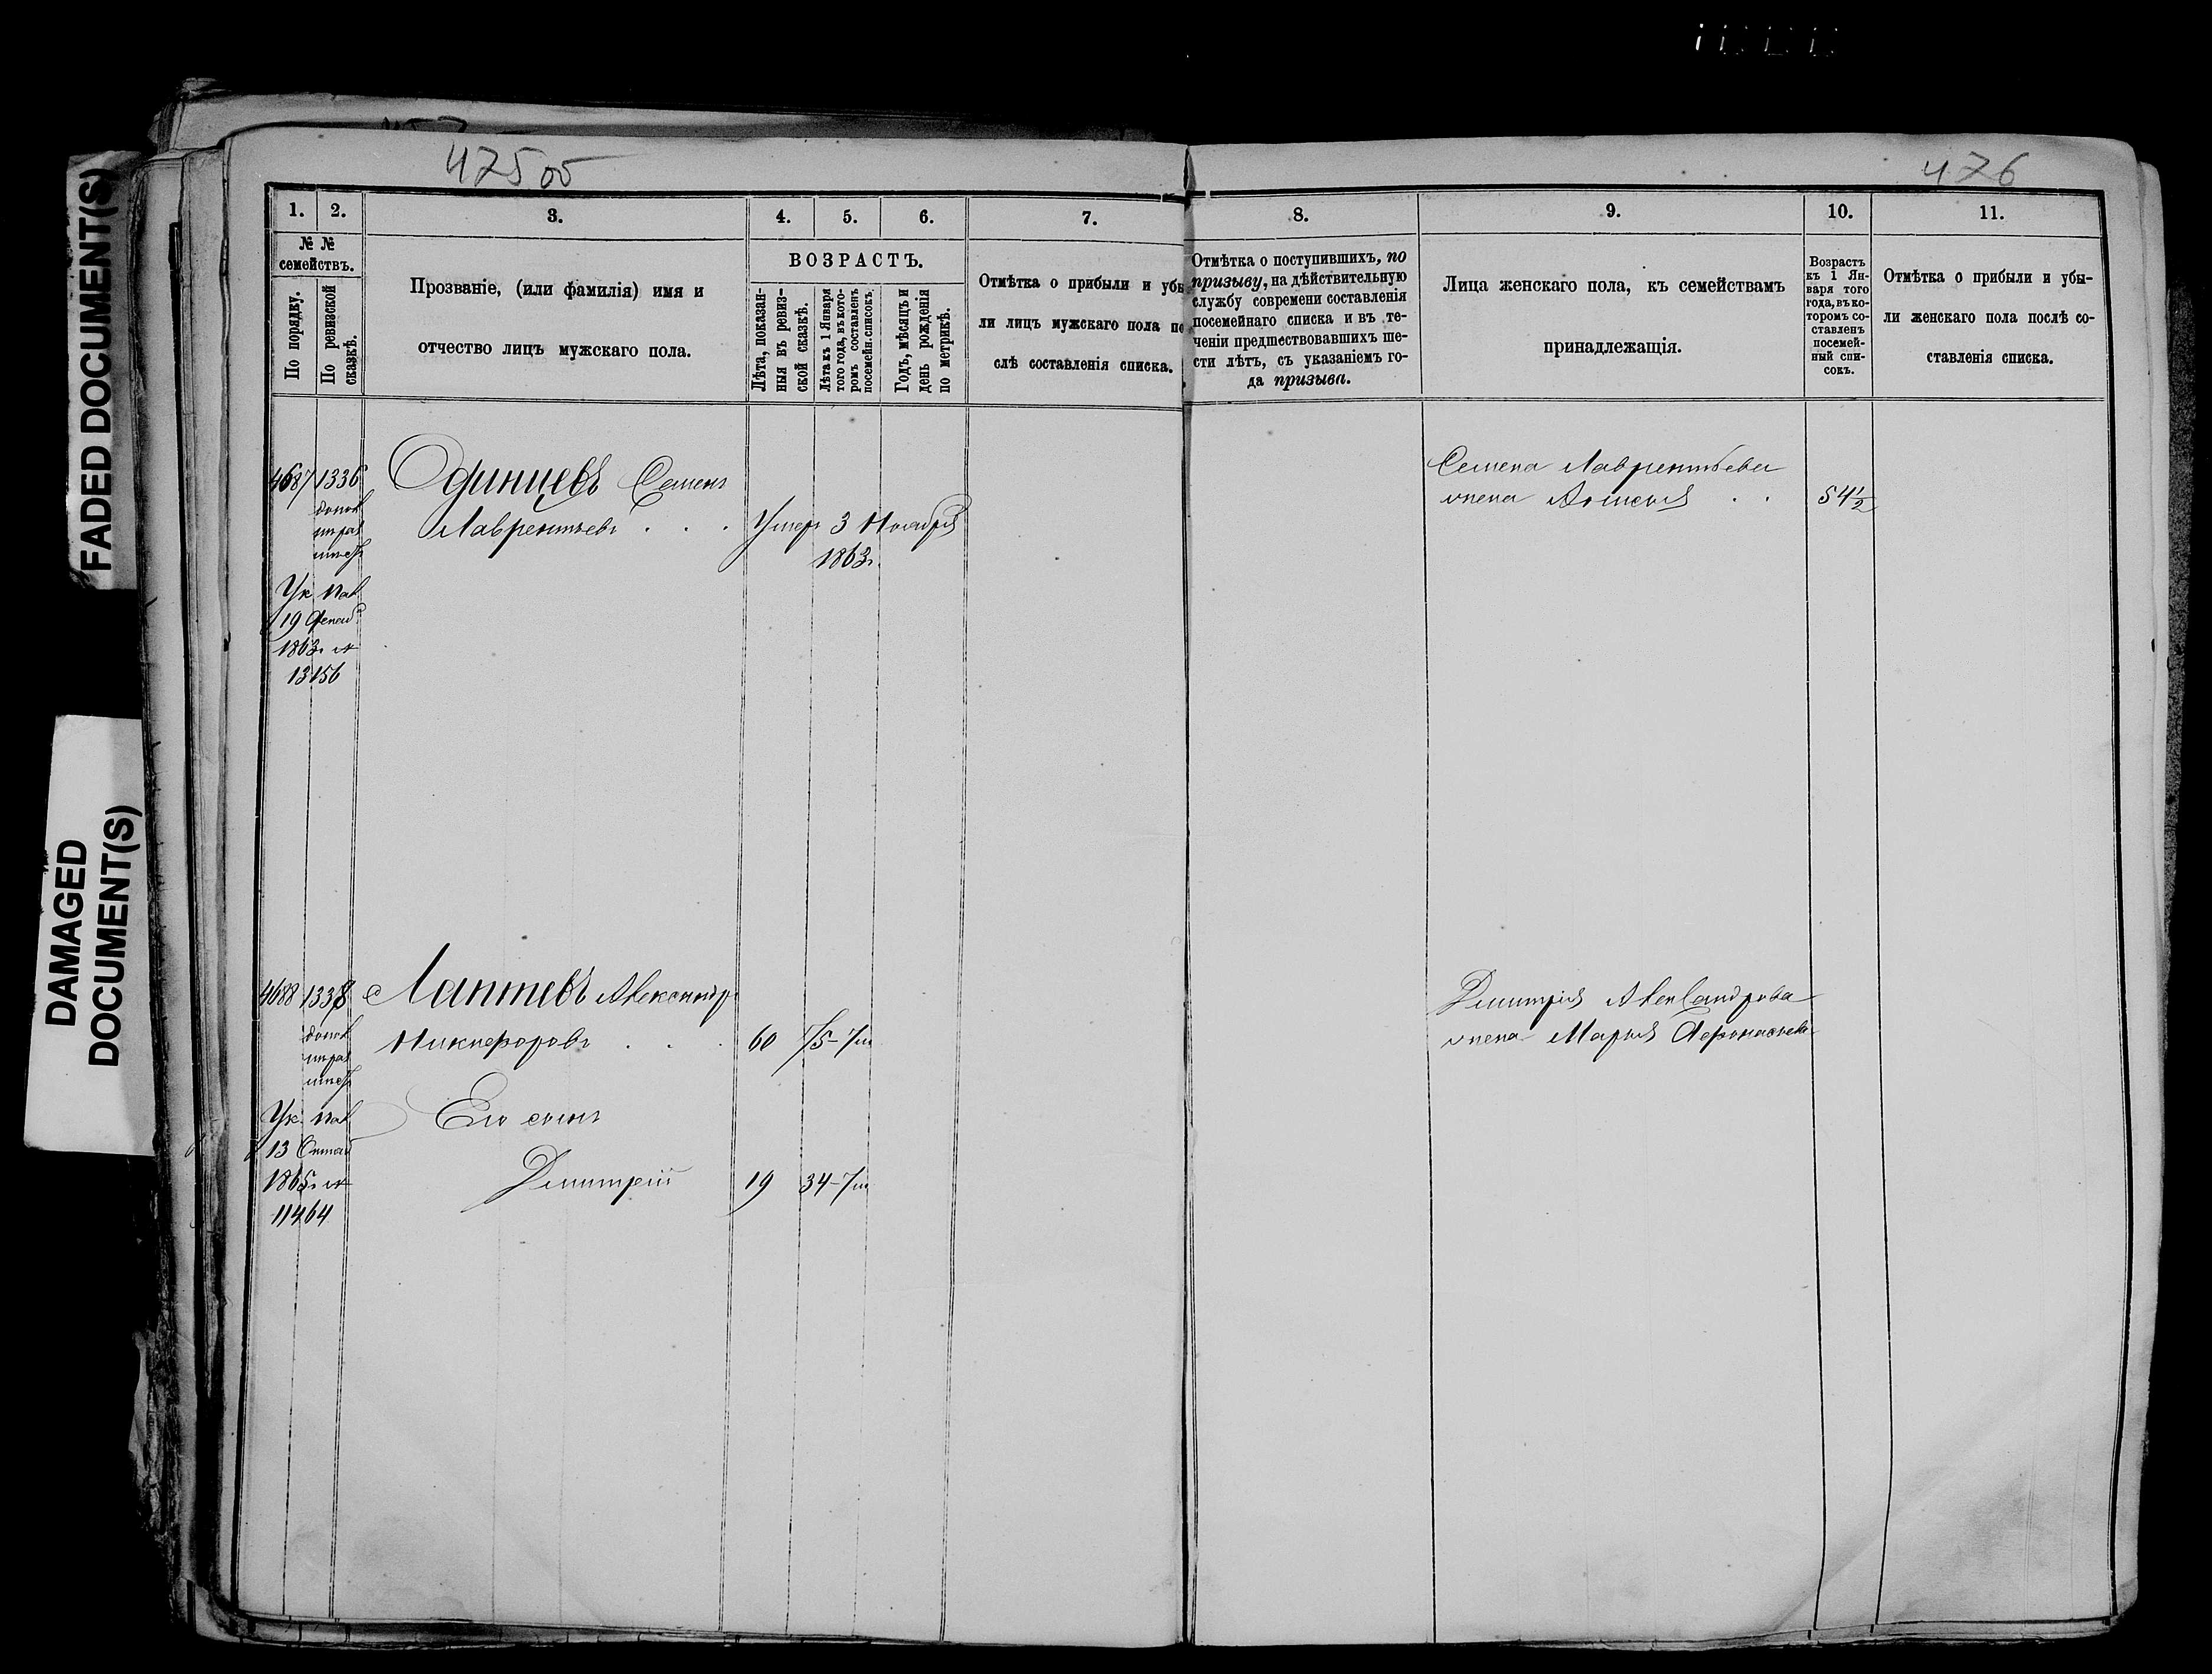 FADED DOCUMENT(S)
DAMAGED
DOCUMENT(S)
475 об
476
1. 2. 3. 4. 5. 6. 7.
№ №
семействъ.
По порядку.
По ревизской
сказкѣ.
Прозваніе, (или фамилія) имя и
отчество лицъ мужскаго пола.
ВОЗРАСТЪ.
Лѣта, показан-
ныя въ ревиз-
ской сказкѣ.
Лѣта къ 1 Января
того года, въ кото-
ромъ составленъ
посемейн. списокъ.
Годъ, мѣсяцъ и
день рожденія
по метрикѣ.
Отмѣтка о прибыли и убы
ли лицъ мужскаго пола по
слѣ составленія списка.
8. 9. 10. 11.
Отмѣтка о поступившихъ, по
призыву, на дѣйствительную
службу современи составленія
посемейнаго списка и въ те-
ченіи предшествовавшихъ ше-
сти лѣтъ, съ указаніемъ го-
да призыва.
Лица женскаго пола, къ семействамъ
принадлежащія.
Возрастъ
къ 1 Ян-
варя того
года, въ ко-
торомъ со-
ставленъ
посемей-
ный спи-
сокъ.
Отмѣтка о прибыли и убы-
ли женскаго пола послѣ со-
ставленія списка.
4687 1336 Одинцевъ Семенъ
Лаврентьевъ . . . Умеръ 3 Ноября
1863г
Ук. Пал
19
1863г №
13156
Семена Лаврентьева
жена . . 54½
4688 1338 Лаптевъ Александръ
Никифоровъ . . . 60 75-7м
Ук. Пал
13
1865г №
11464
Его сынъ
Дмитрій 19 34-7м
Дмитрія Александрова
жена Марья Афонасьева